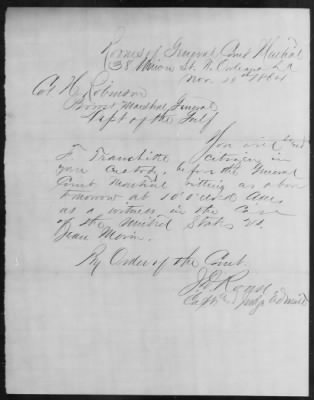 Rooms of General Court Martial
38 Union St. N. Orleans, La
Nov 19th 1864
Col H. Robinson
Provost Marshal General
Dept of the Gulf
You will send
F. Tranchitte citizen in
your custody, before the General
Court Martial sitting as above
tomorrow at 10 o'clock
as a witness in the Case
of the United States vs.
Jean Morin.
By Order of the Court
Capt & Judge Advocate